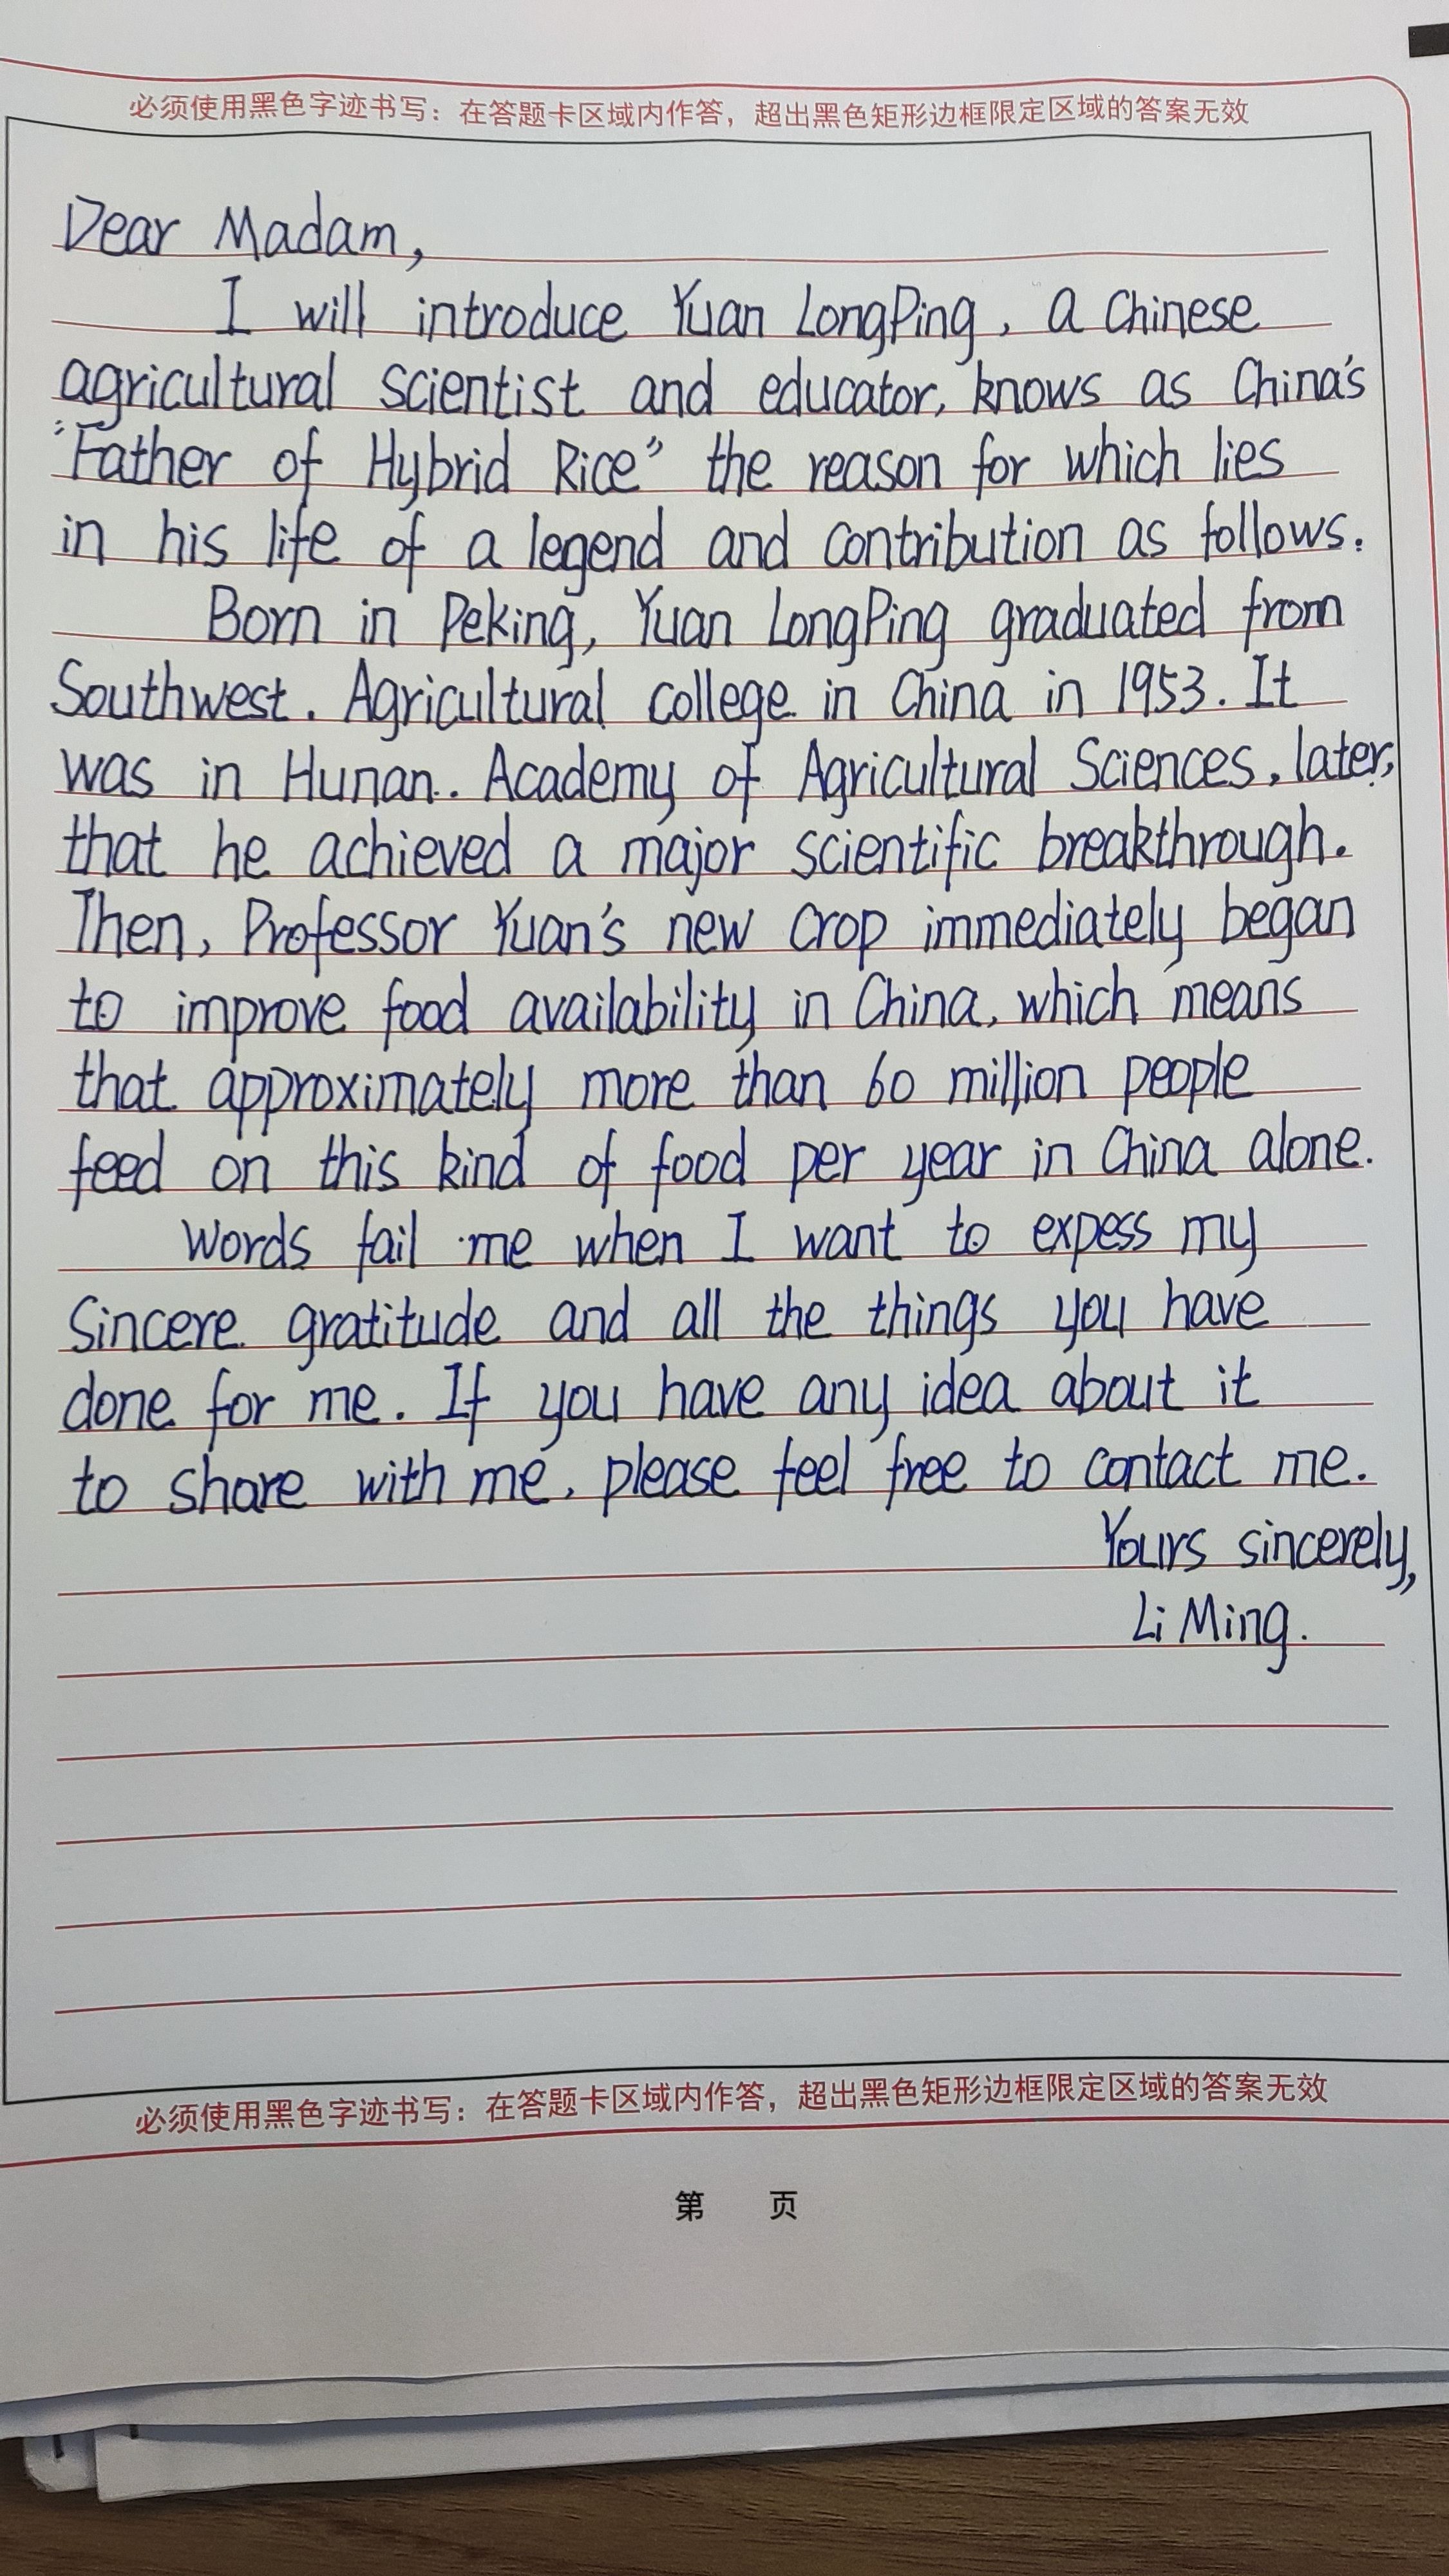 必须使用黑色字迹书写：在答题卡区域内作答，超出黑色矩形边框限定区域的答案无效
Dear Madam,
I will introduce Yuan LongPing, a Chinese
agricultural scientist and educator, knows as China's
"Father of Hybrid Rice" the reason for which lies
in his life of a legend and contribution as follows.
Born in Peking, Yuan LongPing graduated from
Southwest. Agricultural college in China in 1953. It
was in Hunan.. Academy of Agricultural Sciences, later,
that he achieved a major scientific breakthrough.
Then, Professor Yuan's new crop immediately began
to improve food availability in China, which means
that approximately more than 60 million people
feed on this kind of food per year in China alone.
Words fail me when I want to expess my
Sincere gratitude and all the things you have
done for me. If you have any idea about it
to share with me, please feel free to contact me.
Yours sincerely,
Li Ming.
必须使用黑色字迹书写：在答题卡区域内作答，超出黑色矩形边框限定区域的答案无效
第 页